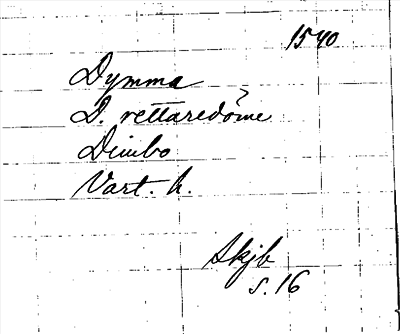 1540
Dymma
D. rettaredöme
Dimbo
Vart. h.
Skjb
s. 16